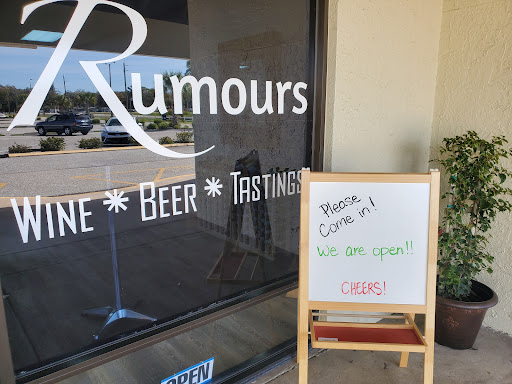 Rumours
Wine * Beer * Tastings
Please
Come in!
We are open!!
CHEERS!
OPEN